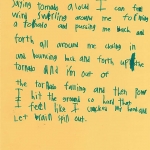 saying tornado aloud I can feel
wind swirling around me forming
a tornado and pushing me back and
forth all around me closing in
and bouncing back and forth up the
tornado and I'm out of
the tornado falling and then pow
I hit the ground so hard that
I feel like I cracked my head and
Let brain spill out.